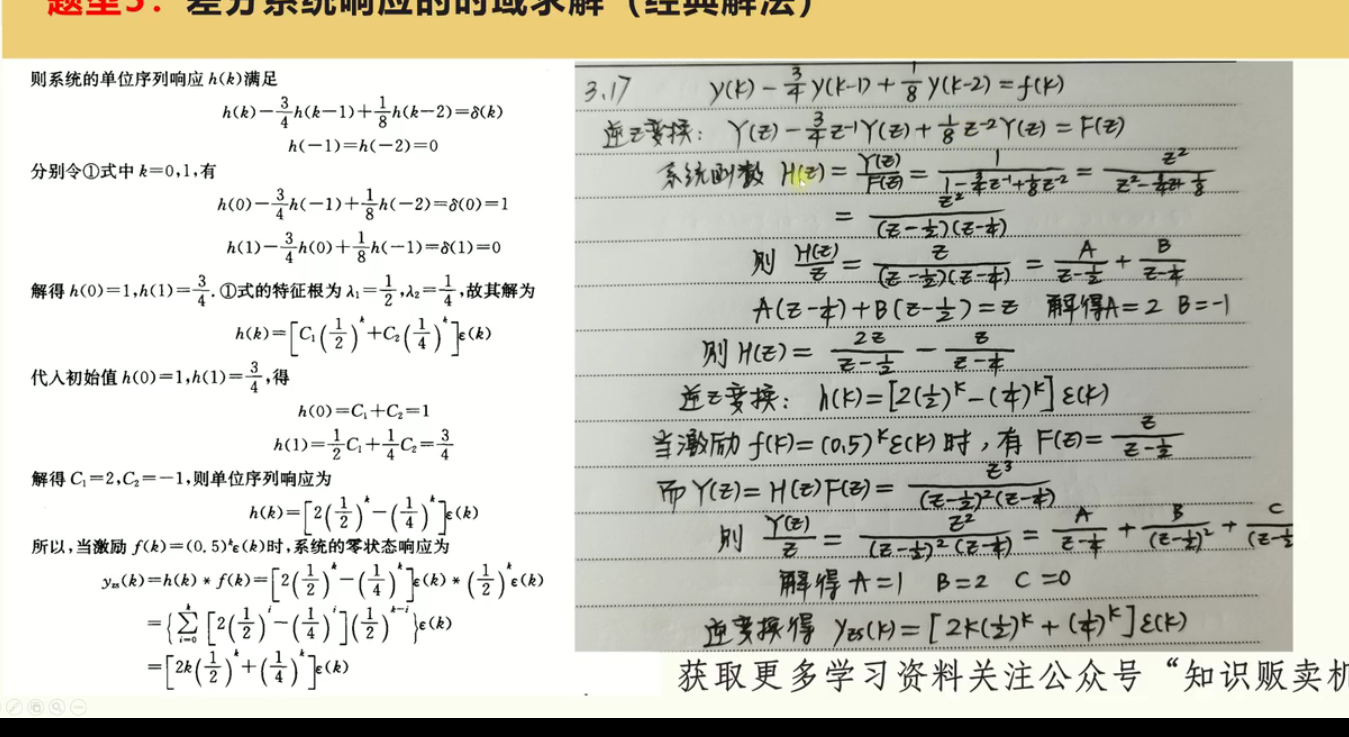 题型3：差分系统响应的时域求解（经典解法）
则系统的单位序列响应 h(k)满足
h(k)−3/4h(k−1)+1/8h(k−2)=δ(k)
h(−1)=h(−2)=0
分别令①式中 k=0,1,有
h(0)−3/4h(−1)+1/8h(−2)=δ(0)=1
h(1)−3/4h(0)+1/8h(−1)=δ(1)=0
解得 h(0)=1,h(1)=3/4.①式的特征根为 λ₁=1/2,λ₂=1/4,故其解为
h(k)=[C₁(1/2)^k+C₂(1/4)^k]ε(k)
代入初始值 h(0)=1,h(1)=3/4,得
h(0)=C₁+C₂=1
h(1)=1/2C₁+1/4C₂=3/4
解得 C₁=2,C₂=−1,则单位序列响应为
h(k)=[2(1/2)^k−(1/4)^k]ε(k)
所以,当激励 f(k)=(0.5)^kε(k)时,系统的零状态响应为
y_zs(k)=h(k)*f(k)=[2(1/2)^k−(1/4)^k]ε(k)*(1/2)^kε(k)
={∑_{i=0}^{k}[2(1/2)^i−(1/4)^i](1/2)^{k−i}}ε(k)
=[2k(1/2)^k+(1/4)^k]ε(k)
3.17 y(k)−3/4y(k-1)+1/8y(k-2)=f(k)
逆Z变换：Y(z)−3/4z⁻¹Y(z)+1/8z⁻²Y(z)=F(z)
系统函数 H(z)=Y(z)/F(z)=1/(1−3/4z⁻¹+1/8z⁻²)=z²/(z²−3/4z+1/8)
=z²/((z−1/2)(z−1/4))
则 H(z)/z=z/((z−1/2)(z−1/4))=A/(z−1/2)+B/(z−1/4)
A(z−1/4)+B(z−1/2)=z 解得A=2 B=-1
则H(z)=2z/(z−1/2)−z/(z−1/4)
逆Z变换：h(k)=[2(1/2)^k−(1/4)^k]ε(k)
当激励f(k)=(0.5)^kε(k)时，有 F(z)=z/(z−1/2)
而Y(z)=H(z)F(z)=z³/((z−1/2)²(z−1/4))
则 Y(z)/z=z²/((z−1/2)²(z−1/4))=A/(z−1/4)+B/(z−1/2)²+C/(z−1/2
解得A=1 B=2 C=0
逆变换得 y_zs(k)=[2k(1/2)^k+(1/4)^k]ε(k)
获取更多学习资料关注公众号“知识贩卖机